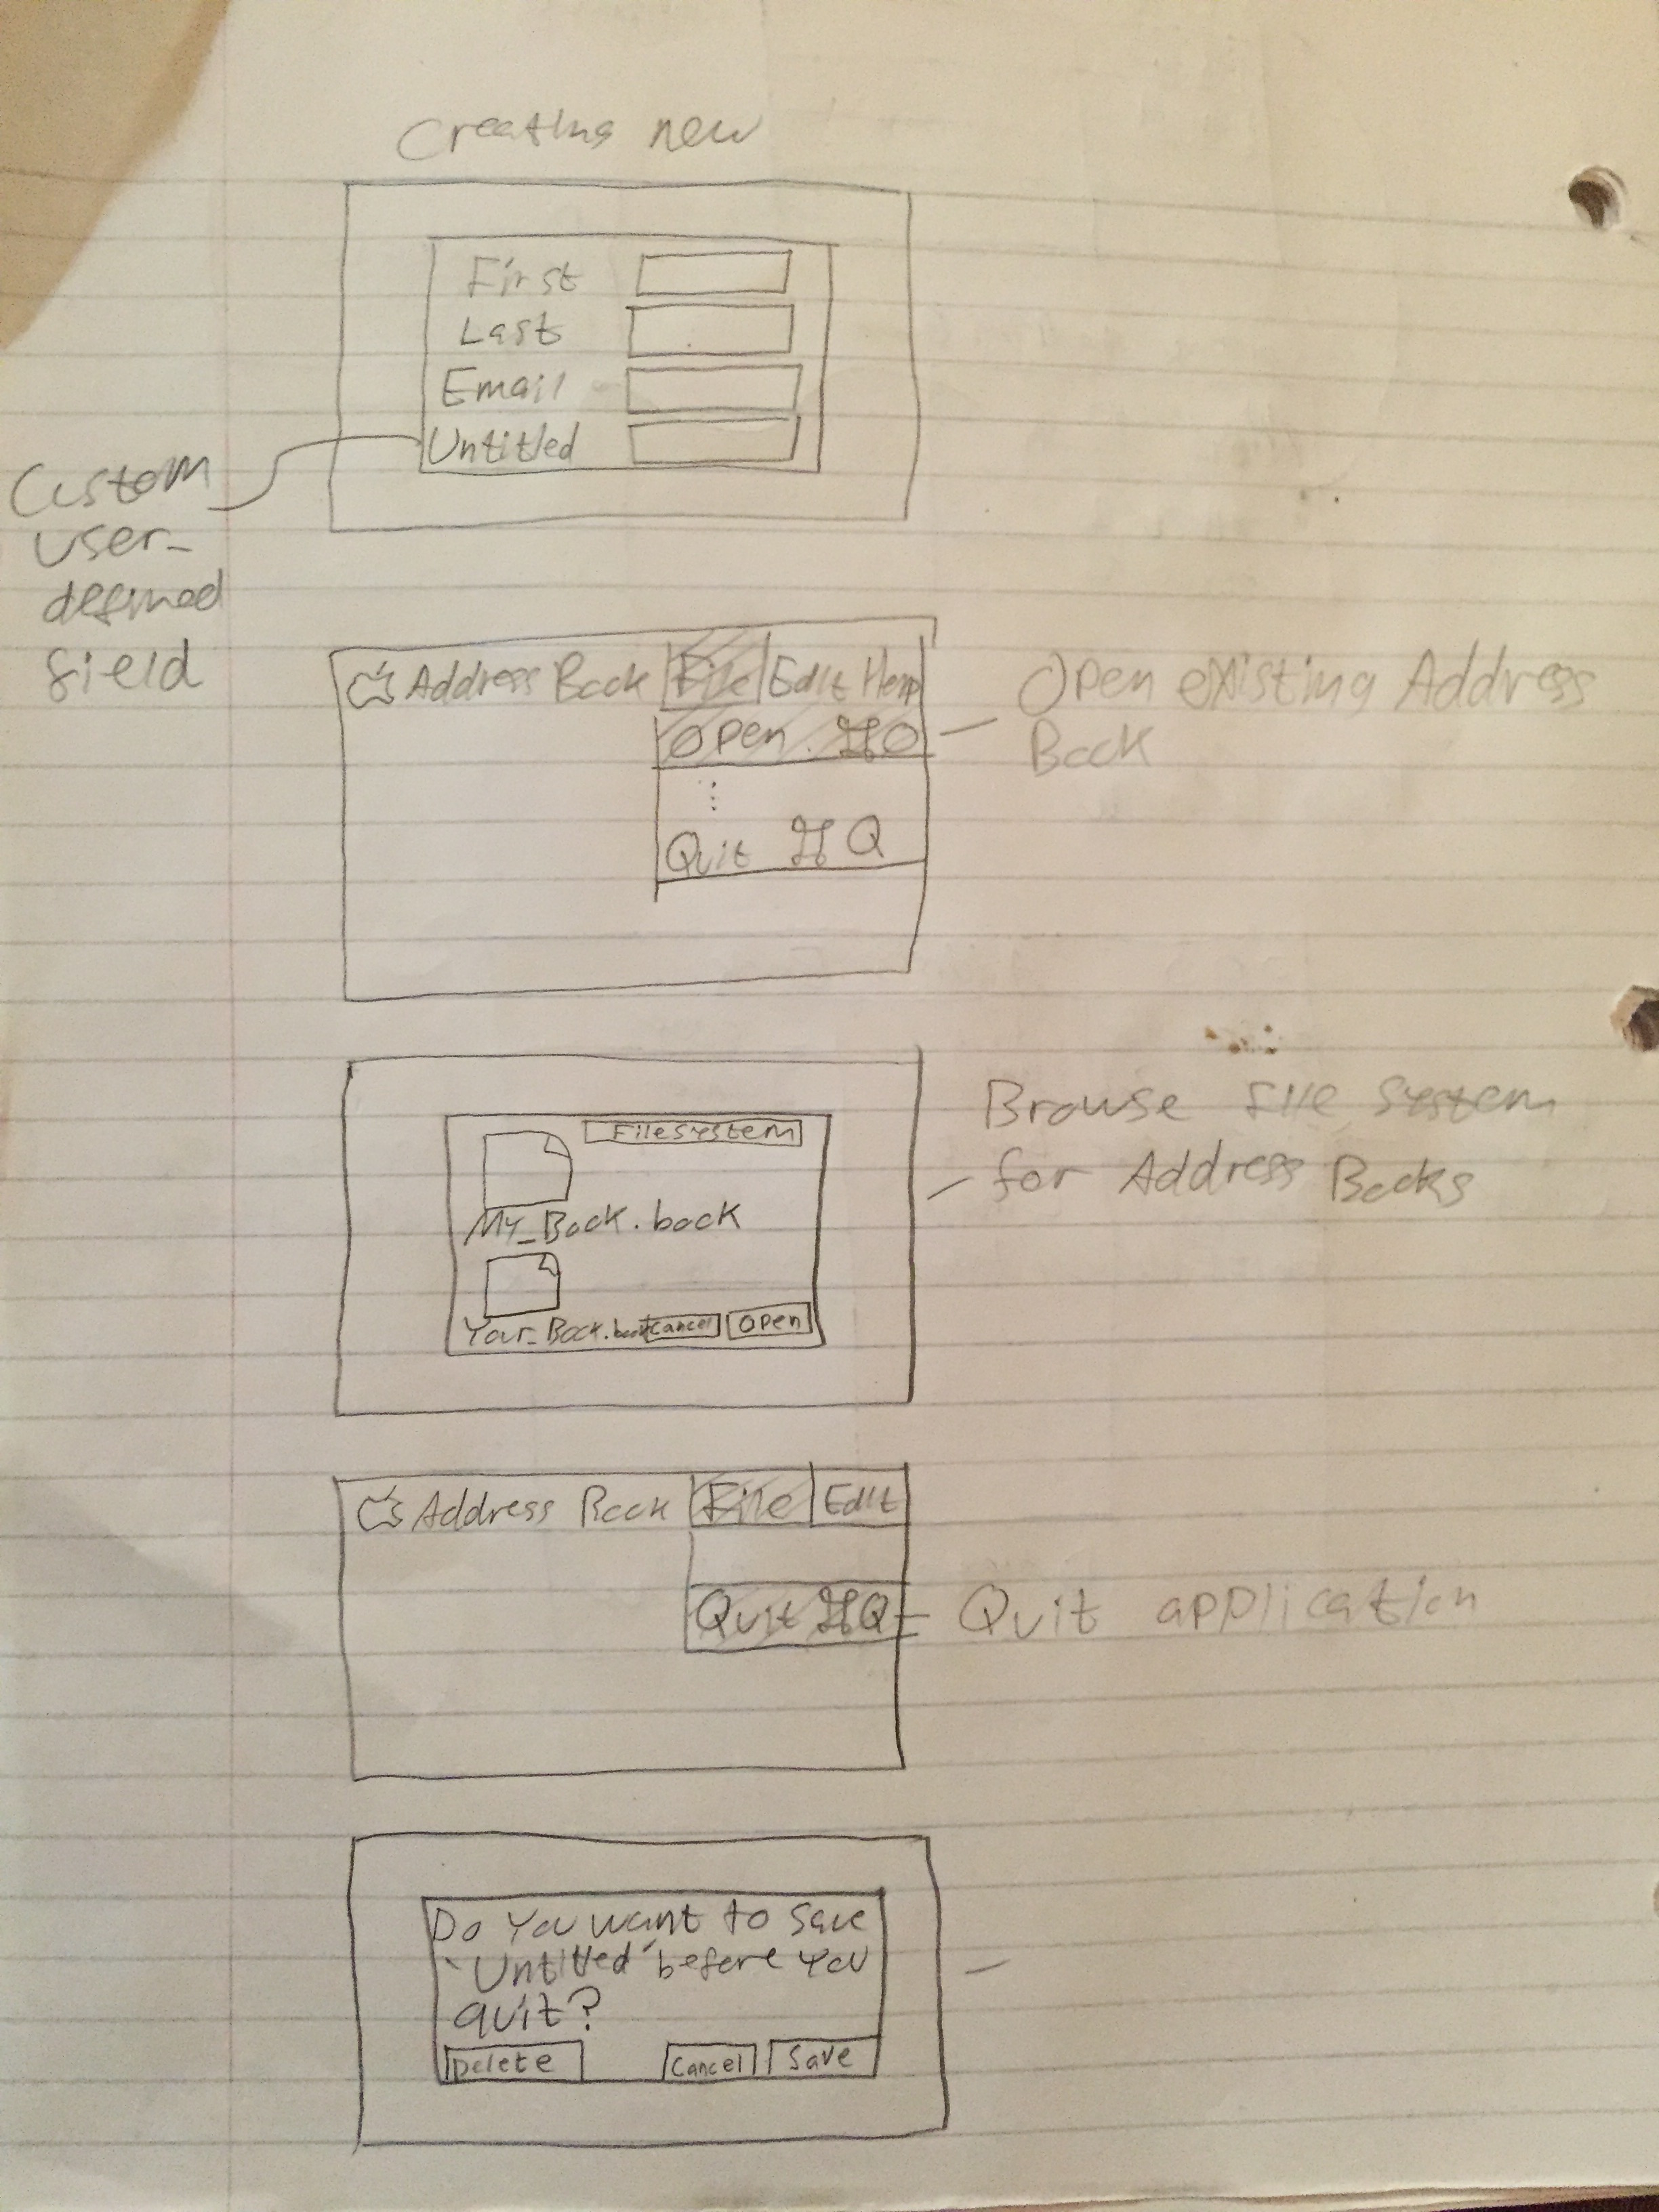 Creating new
First
Last
Email
Untitled
Custom
user-
defined
field
Address Book File Edit Help
Open ⌘O
⋮
Quit ⌘Q
Open existing Address
Book
Filesystem
My_Book.book
Your_Book.book Cancel Open
Browse file system
for Address Books
Address Book File Edit
Quit ⌘Q
Quit application
Do you want to save
"Untitled" before you
quit?
Delete Cancel Save